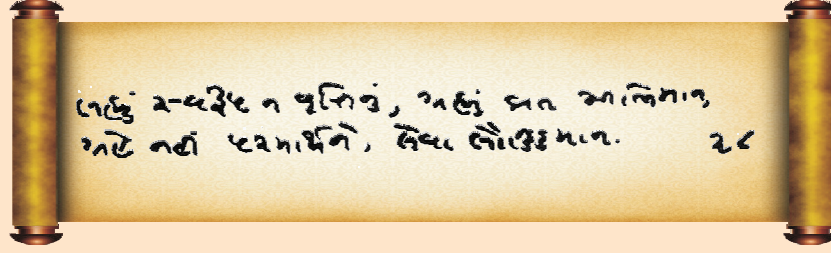 લહ્યું સ્વરૂપ ન વૃત્તિનું, ગ્રહ્યું વ્રત અભિમાન,
ગ્રહે નહીં પરમાર્થને, લેવા લૌકિક માન. ૨૮